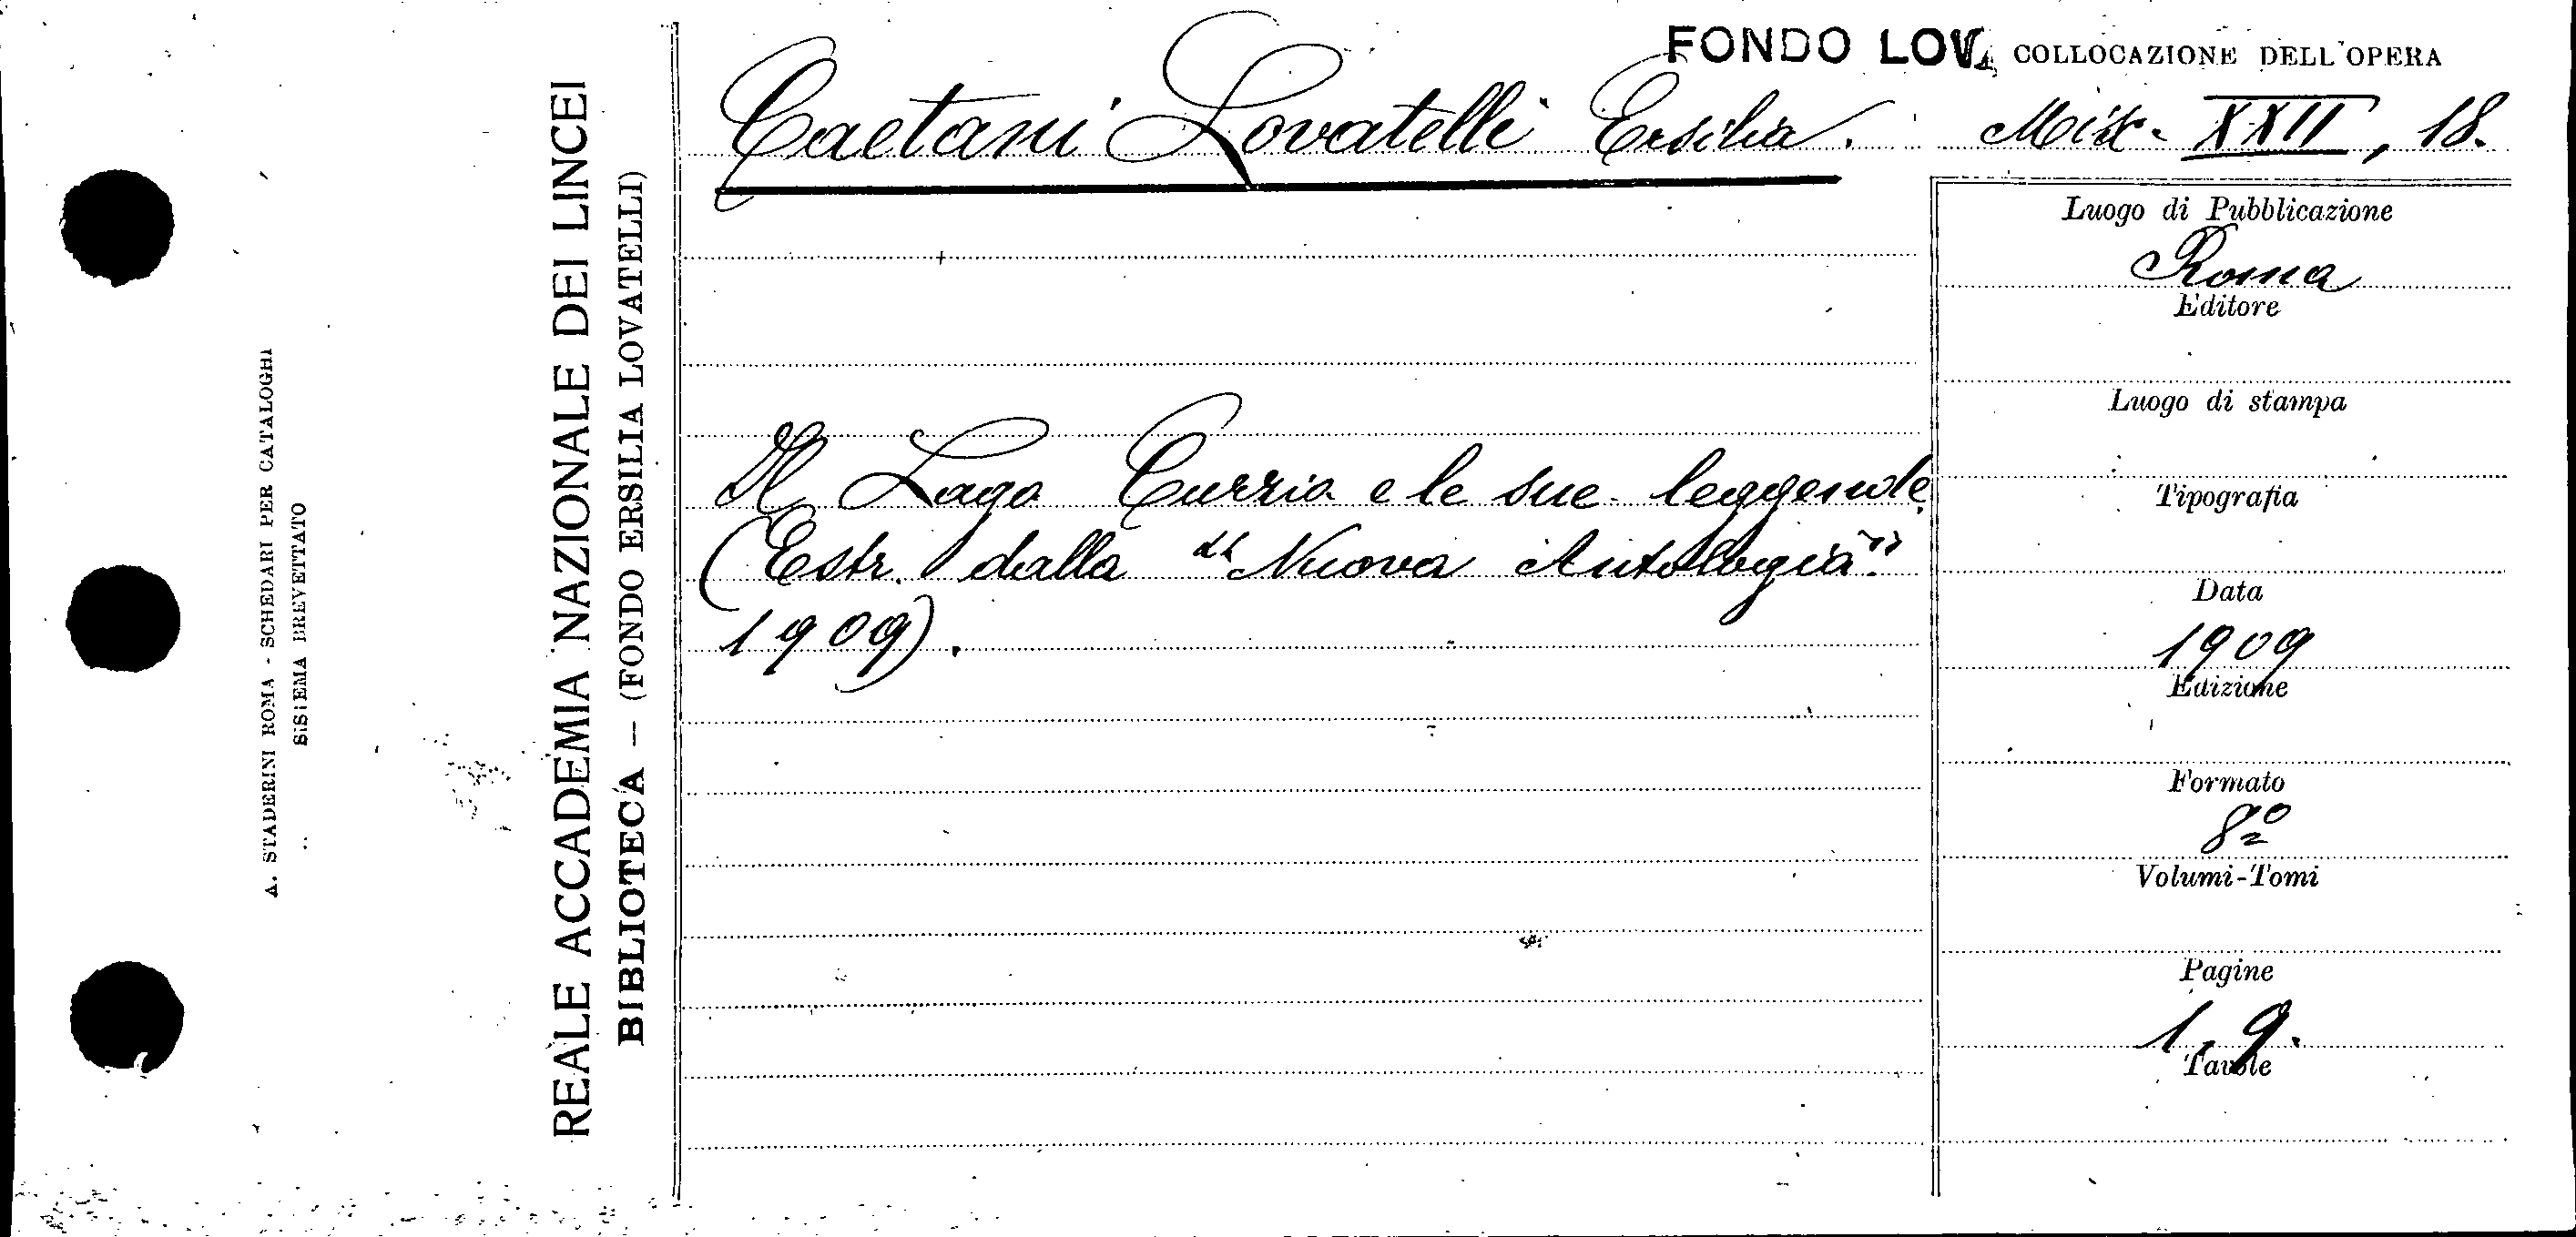 FONDO LOV. COLLOCAZIONE DELL'OPERA
Caetani Lovatelli Ersilia. Misc. XXII, 18.
Il Lago Curzio e le sue leggende
(Estr. dalla "Nuova Antologia"
1909).
Luogo di Pubblicazione
Roma
Editore
Luogo di stampa
Tipografia
Data
1909
Edizione
Formato
8º
Volumi-Tomi
Pagine
1, 9.
Tavole
REALE ACCADEMIA NAZIONALE DEI LINCEI
BIBLIOTECA — (FONDO ERSILIA LOVATELLI)
A. STADERINI ROMA - SCHEDARI PER CATALOGHI
SISTEMA BREVETTATO